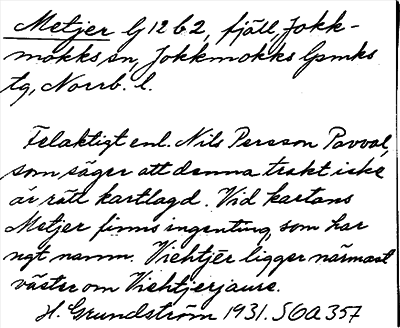 Metjer G12b2, fjäll, Jokk-
mokks sn, Jokkmokks lpmks
tg, Norrb. l.
Felaktigt enl. Nils Persson Pavval,
som säger att denna trakt icke
är rätt kartlagd. Vid kartans
Metjer finns ingenting som har
ngt namn. Viehtjēr ligger närmast
väster om Viehtjerjaure.
H. Grundström 1931. SOA 357